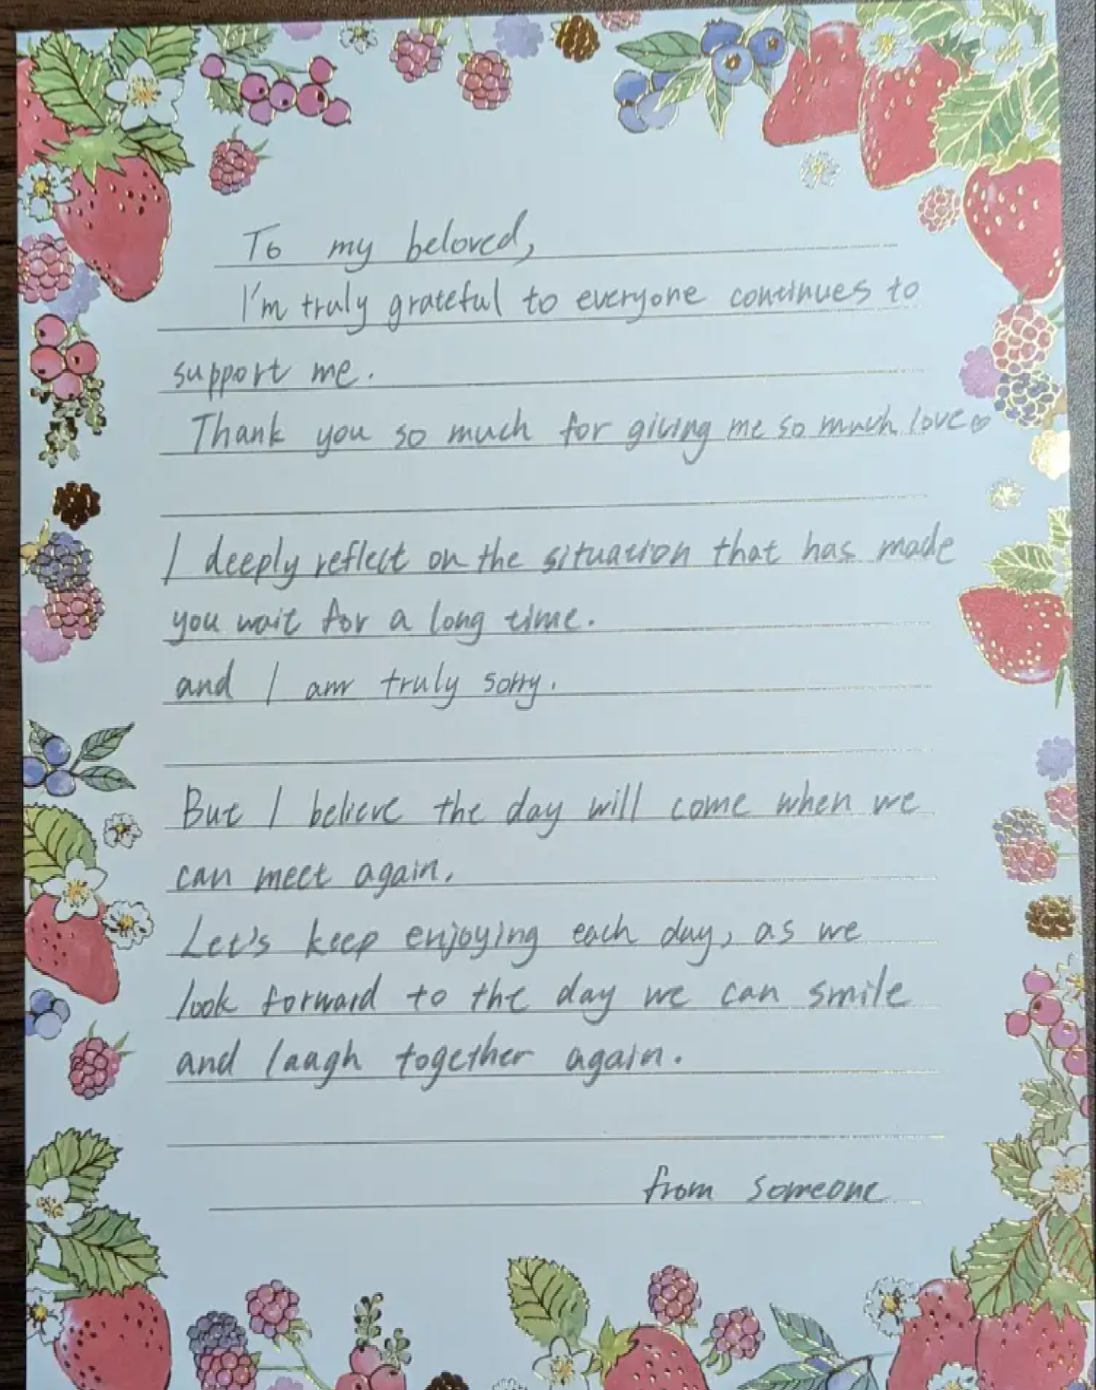 To my beloved,
I'm truly grateful to everyone continues to
support me.
Thank you so much for giving me so much love♡
I deeply reflect on the situation that has made
you wait for a long time.
and I am truly sorry.
But I believe the day will come when we
can meet again.
Let's keep enjoying each day, as we
look forward to the day we can smile
and laagh together again.
from someone